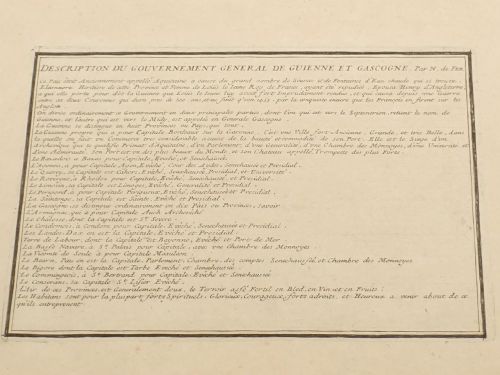 DESCRIPTION DU GOUVERNEMENT GENERAL DE GUIENNE ET GASCOGNE, Par N. de Fer
Ce Païs étoit Anciennement appellé Aquitaine à cause du grand nombre de Source et de Fontaines d'Eau chaude qui si trouve,
Eleonnore Heritiere de cette Province et Femme de Louis le Jeune Roy de France, ayant été repudiée, Epousa Henry d'Angleterre
à qui elle porta pour dôt la Guienne que Louis le Jeune luy avoit fort Imprudemment rendue, et qui causa depuis une Guerre
entre ces deux Couronnes qui dura près de 300 ans, et ne finit qu'en 1453. par la conqueste entiere que les François en firent sur les
Anglois.
On divise ordinairement ce Gouvernement en deux principales parties, dont l'un qui est vers le Septentrion, retient le nom de
Guienne, et l'autre qui est vers le Midy, est appellé en General Gascogne.
La Guienne se distingue en huit Provinces ou Pays, qui sont:
La Guienne propre qui a pour Capitale Bordeaux sur la Garonne, C'est une Ville fort Ancienne, Grande, et tres Belle, dont
la quelle on fait un Commerce tres considerable à cause de la beauté et commodité de son Port. Elle est le Siege d'un
Archevêque qui se qualifie Primat d'Aquitaine, d'un Parlement, d'une Generalité, d'une Chambre des Monnoyes, d'une Université et
d'une Admirauté, Son Port est des plus beaux du Monde, et son Château appellé Trompette des plus Forts.
Le Bazadois a Bazas pour Capitale, Evêché, et Senechaucé.
L'Agenois, a pour Capitale Agen, Evêché, Cour des Aydes, Senechaucé et Presidial.
Le Quercy, sa Capitale est Cahors, Evêché, Senechaucé, Presidial, et Université.
Le Rovergue, a Rhodez pour Capitale, Evêché, Senechaucé, et Presidial.
Le Limosin, sa Capitale est Limoges, Evêché, Generalité et Presidial.
Le Perigord, a pour Capitale Perigueux, Evêché, Senechaucé et Presidial.
La Saintonge, sa Capitale est Sainte, Evêché et Presidial.
La Gascogne se distingue ordinairement en dix Païs ou Provinces, Savoir
L'Armagnac, qui a pour Capitale Auch Archevêché
La Chalosse, dont la Capitale est St. Severe.
Le Condomois, a Condom pour Capitale, Evêché, Senechaucé et Presidial.
Les Landes, Dax en est la Capitale, Evêché et Presidial.
Terre de Labour, dont la Capitale est Bayonne, Evêché et Port de Mer
La Basse Navarre, a St. Palais pour Capitale, avec une Chambre des Monnoyes
La Vicomté de Soule, a pour Capitale Mauleon.
Le Bearn, Pau en est la Capitale, Parlement, Chambre, des comptes Senechaussée, et Chambre des Monnoyes
Le Bigore dont la Capitale est Tarbe Evêché et Senechaucé
Le Commingeois, a St. Bertrand pour Capitale Evêché et Senechaucé
Le Conserans, sa Capitale St. Lisier Evêché.
L'Air de ces Provinces, est Generalement doux, le Terroir assé Fertil en Bled, en Vin et en Fruits:
Les Habitans sont pour la pluspart forts Spirituels, Glorieux, Courageux, forts adroits, et Heureux a venir about de ce
qu'ils entreprenent.